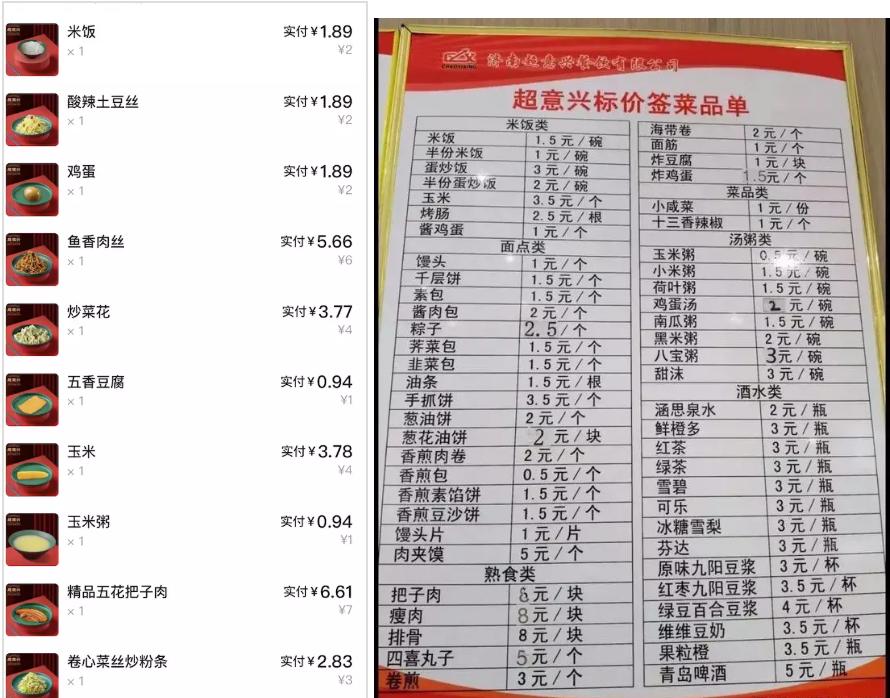 米饭
实付¥1.89
×1
¥2
酸辣土豆丝
实付¥1.89
×1
¥2
鸡蛋
实付¥1.89
×1
¥2
鱼香肉丝
实付¥5.66
×1
¥6
炒菜花
实付¥3.77
×1
¥4
五香豆腐
实付¥0.94
×1
¥1
玉米
实付¥3.78
×1
¥4
玉米粥
实付¥0.94
×1
¥1
精品五花把子肉
实付¥6.61
×1
¥7
卷心菜丝炒粉条
实付¥2.83
×1
¥3
济南超意兴餐饮有限公司
超意兴标价签菜品单
米饭类
米饭 1.5元/碗
半份米饭 1元/碗
蛋炒饭 3元/碗
半份蛋炒饭 2元/碗
玉米 3.5元/个
烤肠 2.5元/根
酱鸡蛋 1元/个
面点类
馒头 1元/个
千层饼 1.5元/个
素包 1.5元/个
酱肉包 2元/个
粽子 2.5/个
荠菜包 1.5元/个
韭菜包 1.5元/个
油条 1.5元/根
手抓饼 3.5元/个
葱油饼 2元/个
葱花油饼 2元/块
香煎肉卷 2元/个
香煎包 0.5元/个
香煎素馅饼 1.5元/个
香煎豆沙饼 1.5元/个
馒头片 1元/片
肉夹馍 5元/个
熟食类
把子肉 元/块
瘦肉 8元/块
排骨 8元/块
四喜丸子 5元/个
卷煎 3元/个
海带卷 2元/个
面筋 1元/个
炸豆腐 1元/块
炸鸡蛋 1.5元/个
菜品类
小咸菜 1元/份
十三香辣椒 1元/个
汤粥类
玉米粥 0.5元/碗
小米粥 1.5元/碗
荷叶粥 1.5元/碗
鸡蛋汤 2元/碗
南瓜粥 1.5元/碗
黑米粥 2元/碗
八宝粥 3元/碗
甜沫 3元/碗
酒水类
涵思泉水 2元/瓶
鲜橙多 3元/瓶
红茶 3元/瓶
绿茶 3元/瓶
雪碧 3元/瓶
可乐 3元/瓶
冰糖雪梨 3元/瓶
芬达 3元/瓶
原味九阳豆浆 3元/杯
红枣九阳豆浆 3.5元/杯
绿豆百合豆浆 4元/杯
维维豆奶 3.5元/杯
果粒橙 3.5元/瓶
青岛啤酒 5元/瓶